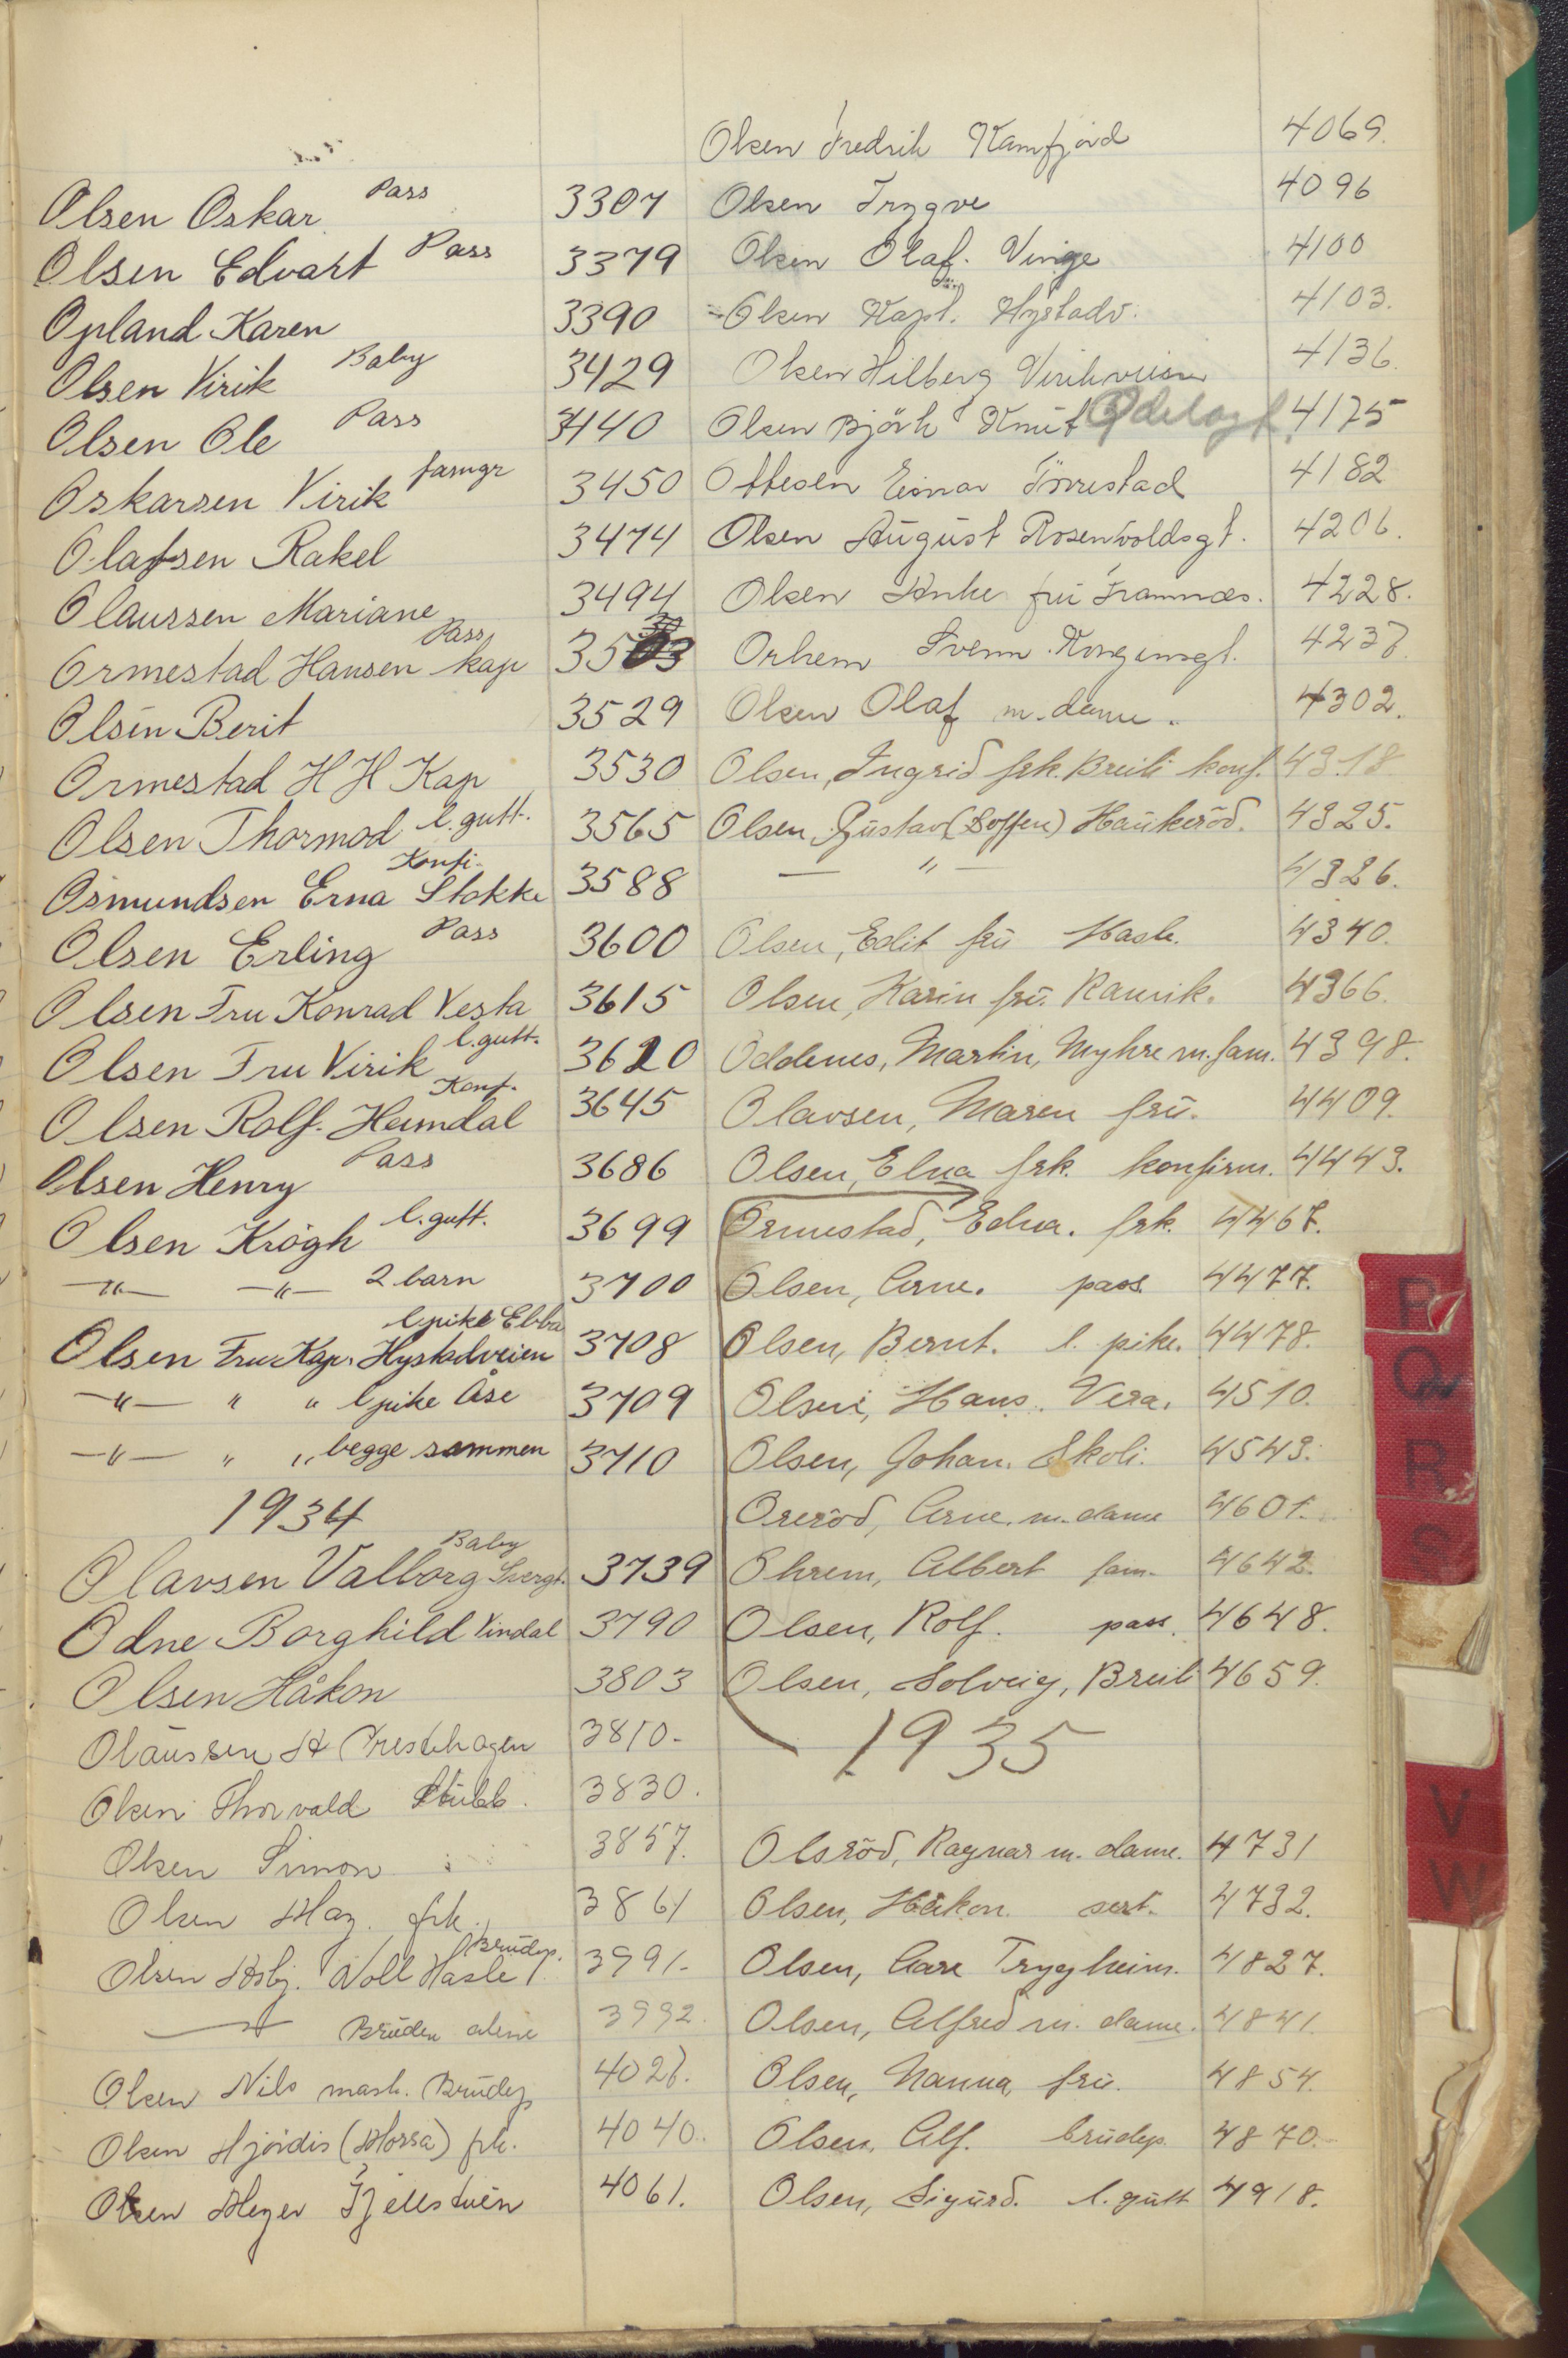 Olsen Oskar Pass 3307
Olsen Edvart Pass 3379
Opland Karen 3390
Olsen Virik Baby 3429
Olsen Ole Pass 3440
Oskarsen Virik famgr 3450
Olafsen Rakel 3474
Olaussen Mariane 3494
Ormestad Hansen kap Pass 3503
Olsen Berit 3529
Ormestad H H Kap 3530
Olsen Thormod l. gutt. 3565
Osmundsen Erna Stokke Konfi. 3588
Olsen Erling Pass 3600
Olsen Fru Konrad Vesta 3615
Olsen Fru Virik l. gutt. 3620
Olsen Rolf. Heimdal Konf. 3645
Olsen Henry Pass 3686
Olsen Krøgh l. gutt. 3699
—"— —"— 2 barn 3700
Olsen Fru Kap. Hystadveien l pike Ebba 3708
—"— " " l pike Åse 3709
—"— " " begge sammen 3710
1934
Olavsen Valborg Baby 3739
Odne Borghild Vindal 3790
Olsen Håkon 3803
Olaussen H Prestehagen 3810.
Olsen Thorvald Stubb. 3830.
Olsen Simon 3857.
Olsen May. frk. 3861
Olsen Asbj. Woll Hasle Brudep. 3991.
—"— Bruden alene 3992.
Olsen Nils mask. Brudep 4027.
Olsen Hjördis (Mossa) frk. 4040.
Olsen Meyer Fjellstuen 4061.
Olsen Fredrik Kamfjord 4069.
Olsen Trygve 4096
Olsen Olaf. Vinge 4100
Olsen Kapt. Hystadv. 4103.
Olsen Hilberg Virikveien 4136.
Olsen Björk Knut Ödelagt 4175
Ottesen Einar Törrestad 4182
Olsen August Rosenvoldsgt. 4206.
Olsen Anke fru Framnæs. 4228.
Orhem Svenn Kongensgt. 4237
Olsen Olaf m. dame. 4302.
Olsen, Ingrid frk. Breili konf. 4318
Olsen, Gustav (Soffen) Haukeröd. 4325.
— " — 4326.
Olsen, Edit fru Hasle. 4340.
Olsen, Karin fru. Ranvik. 4366.
Oddenes, Martin, Myhre m. fam. 4398.
Olavsen, Maren fru. 4409.
Olsen, Elna frk. konfirm. 4443.
Ormestad, Edna. frk. 4467.
Olsen, Arne. pass. 4477.
Olsen, Bernt. l. pike. 4478.
Olsen, Hans. Vera. 4510.
Olsen, Johan. Skoli. 4543.
Oreröd, Arne. m. dame 4601.
Ohrem, Albert fam. 4642.
Olsen, Rolf. pass. 4648.
Olsen, Solveig, Breili 4659.
1935
Olsröd, Ragnar m. dame. 4731
Olsen, Håkon. sert. 4732.
Olsen, Aase Trygheim. 4827.
Olsen, Alfred m. dame. 4841.
Olsen, Nanna, fru. 4854.
Olsen, Alf. brudep. 4870.
Olsen, Sigurd. l. gutt 4918.
P
Q
R
S
V
W